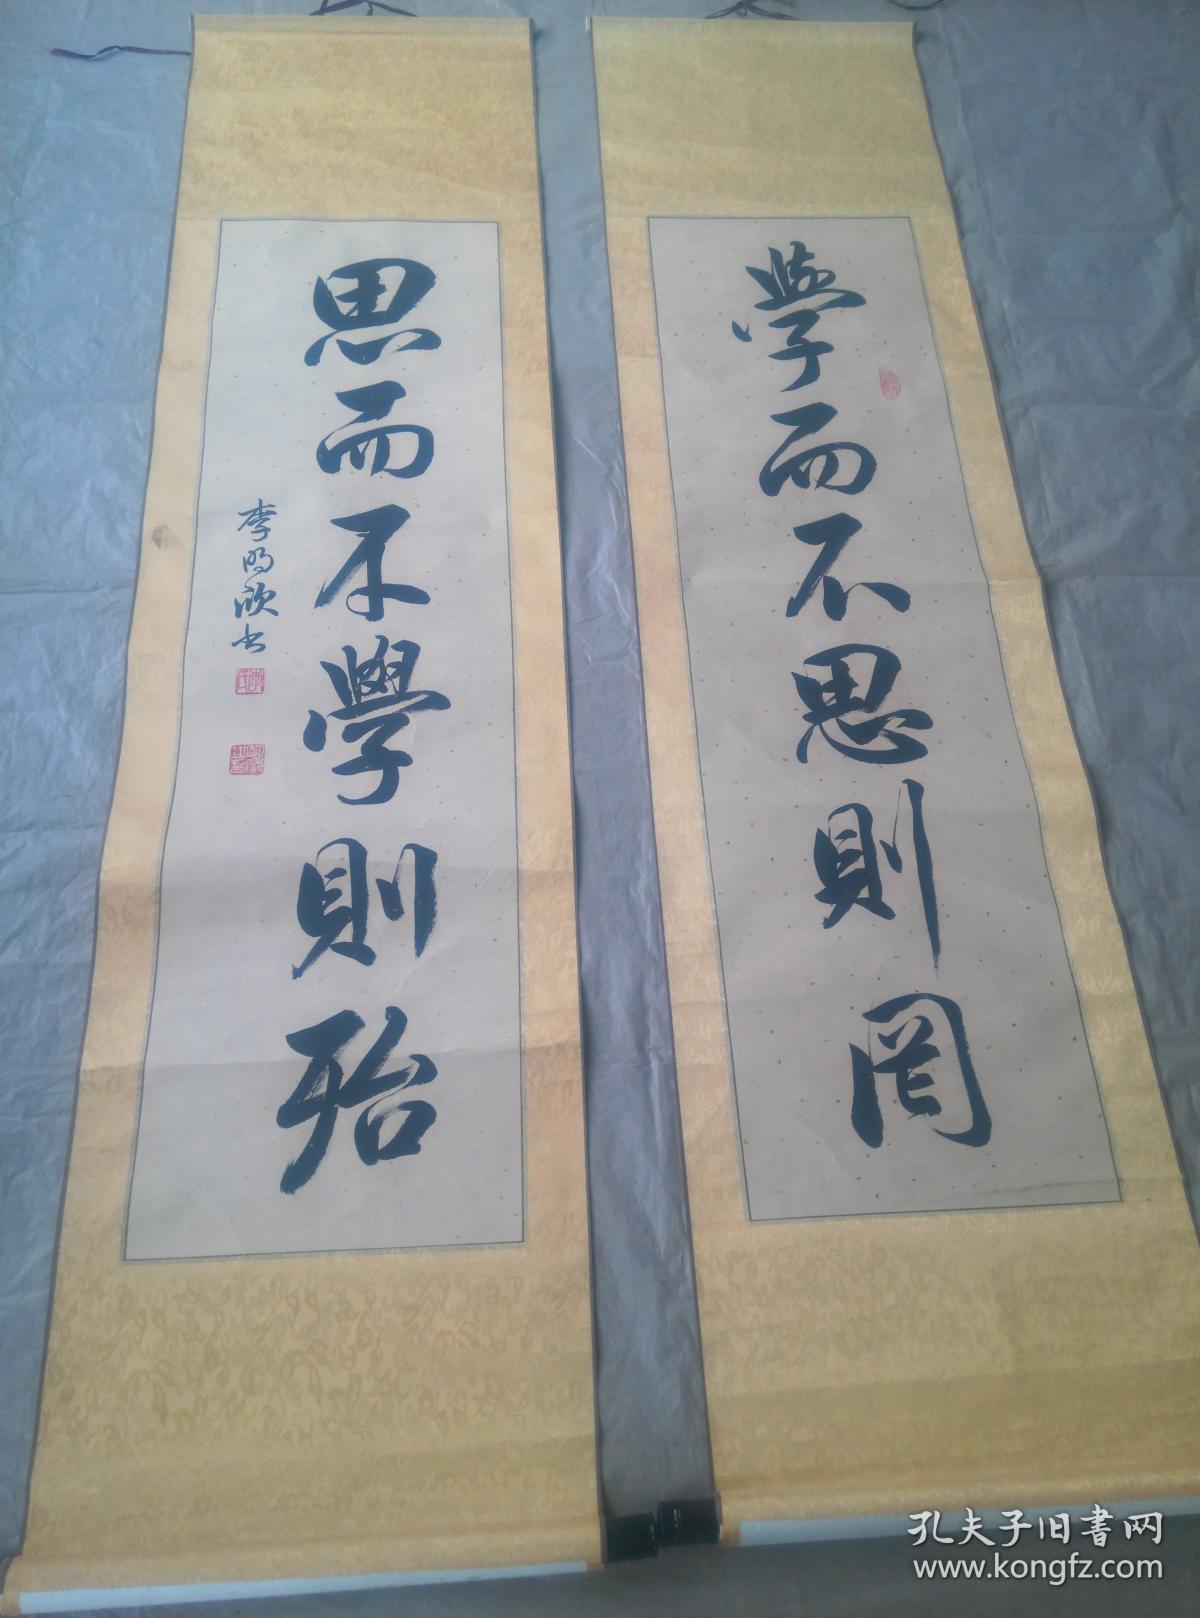 學而不思則罔
思而不學則殆
李明欣书
孔夫子旧書网
www.kongfz.com